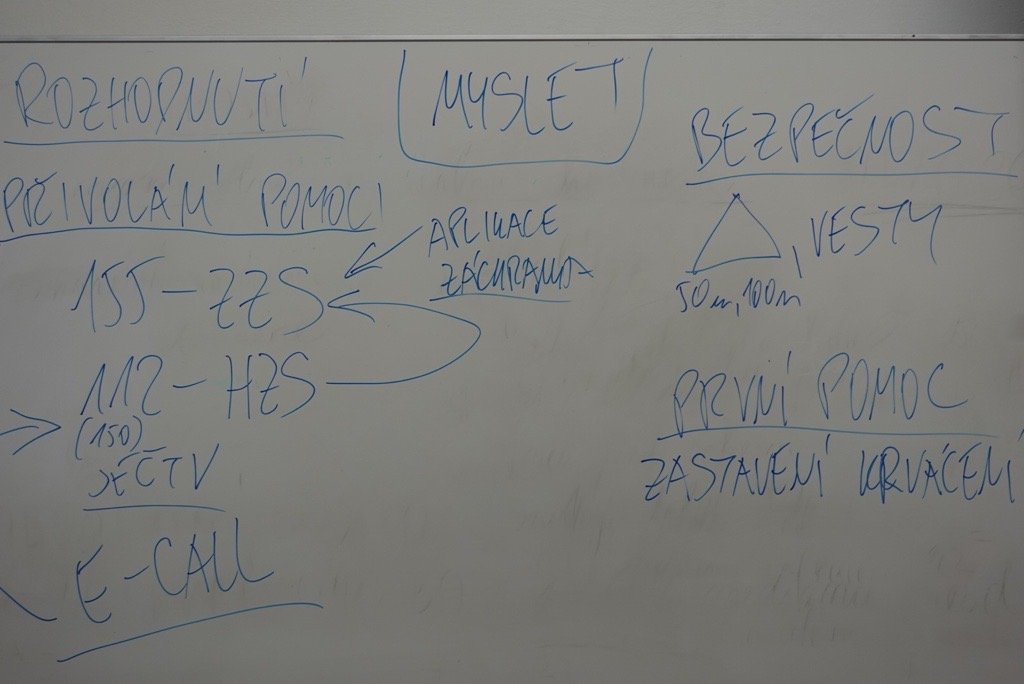 ROZHODNUTÍ
PŘIVOLÁNÍ POMOCI
155 - ZZS
112 - HZS
(150)
JEČTV
E-CALL
MYSLET
APLIKACE
ZÁCHRANKA
BEZPEČNOST
, VESTY
50m, 100m
PRVNÍ POMOC
ZASTAVENÍ KRVÁCENÍ